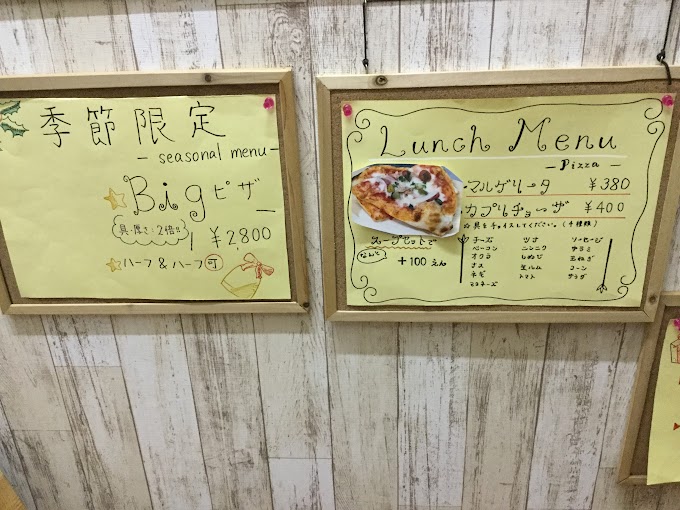 季節限定
- seasonal menu -
Bigピザ
具・厚さ・2倍!!
¥2800
ハーフ&ハーフ可
Lunch Menu
- Pizza -
マルゲリータ ¥380
カプリチョーザ ¥400
☆具をチョイスしてください。(4種類)
チーズ ツナ ソーセージ
ベーコン ニンニク サラミ
オクラ しめじ 玉ねぎ
ナス 生ハム コーン
ネギ トマト サラダ
マヨネーズ
スープセットで
なんと +100えん